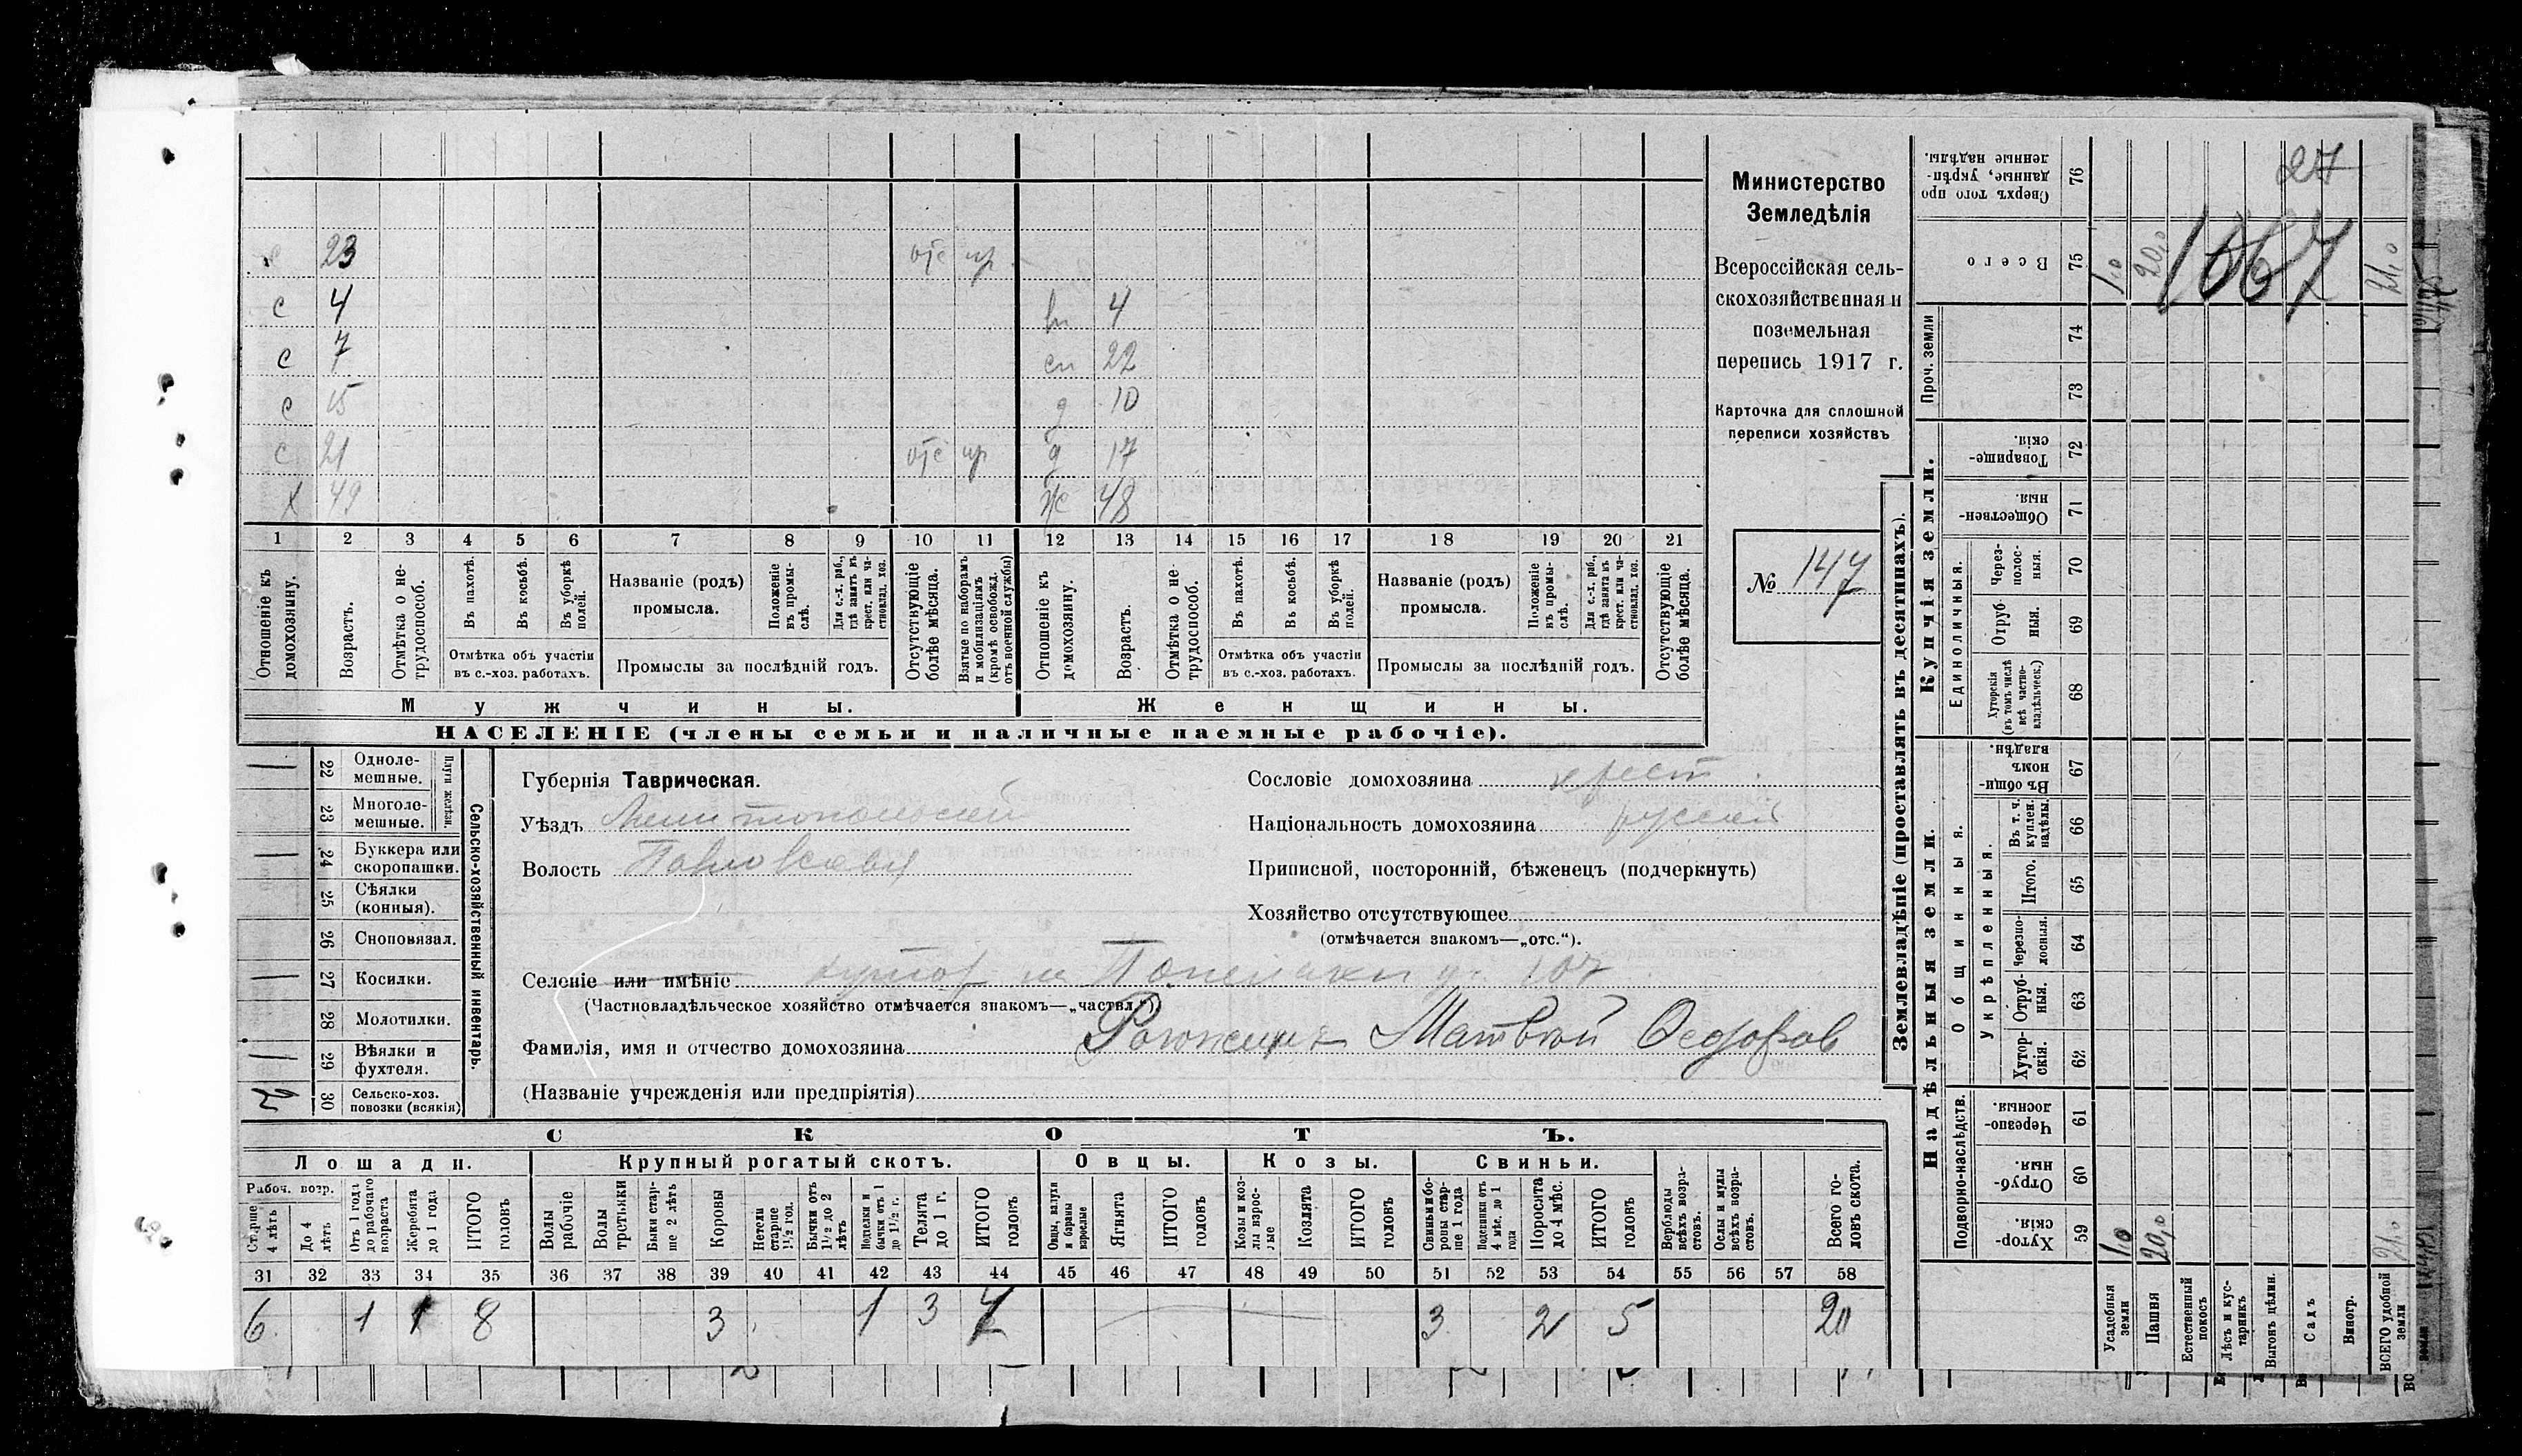 23 отс пр
с 4 4
с 7 сн 22
с 15 д 10
с 21 отс пр д 17
х 49 ж 48
1 2 3 4 5 6 7 8 9 10 11 12 13 14 15 16 17 18 19 20 21
Отношеніе къ домохозяину.
Возрастъ.
Отмѣтка о нетрудоспособ.
Въ пахотѣ.
Въ косьбѣ.
Въ уборкѣ полей.
Отмѣтка объ участіи въ с.-хоз. работахъ.
Названіе (родъ) промысла.
Положеніе въ промыслѣ.
Для с.-х. раб., гдѣ занятъ въ крест. или частновлад. хоз.
Промыслы за послѣдній годъ.
Отсутствующіе болѣе мѣсяца.
Взятые по наборамъ и мобилизаціямъ (кромѣ освобожд. отъ военной службы)
Отношеніе къ домохозяину.
Возрастъ.
Отмѣтка о нетрудоспособ.
Въ пахотѣ.
Въ косьбѣ.
Въ уборкѣ полей.
Отмѣтка объ участіи въ с.-хоз. работахъ.
Названіе (родъ) промысла.
Положеніе въ промыслѣ.
Для с.-х. раб., гдѣ занята въ крест. или частновлад. хоз.
Промыслы за послѣдній годъ.
Отсутствующіе болѣе мѣсяца.
Мужчины. Женщины.
НАСЕЛЕНІЕ (члены семьи и наличные наемные рабочіе).
Министерство
Земледѣлія
Всероссійская сель-
скохозяйственная и
поземельная
перепись 1917 г.
Карточка для сплошной
переписи хозяйствъ
№ 147
Сельско-хозяйственный инвентарь.
Плуги желѣзн.
22 Одноле-мешные.
23 Многоле-мешные.
24 Буккера или скоропашки.
25 Сѣялки (конныя).
26 Сноповязал.
27 Косилки.
28 Молотилки.
29 Вѣялки и фухтеля.
30 Сельско-хоз. повозки (всякія)
2
Губернія Таврическая.
Уѣздъ Мелитопольскій
Волость Павловская
Сословіе домохозяина крест.
Національность домохозяина русскій
Приписной, посторонній, бѣженецъ (подчеркнуть)
Хозяйство отсутствующее
(отмѣчается знакомъ—„отс.“).
Селеніе или имѣніе хутор на
(Частновладѣльческое хозяйство отмѣчается знакомъ—„частвл.“)
Фамилія, имя и отчество домохозяина Матвѣй Федоров
(Названіе учрежденія или предпріятія)
СКОТЪ.
Лошади. Крупный рогатый скотъ. Овцы. Козы. Свиньи.
Рабоч. возр.
Старше 4 лѣтъ
До 4 лѣтъ
Отъ 1 года до рабочаго возраста
Жеребята до 1 года
ИТОГО головъ
Волы рабочіе
Волы третьяки
Быки старше 2 лѣтъ
Коровы
Нетели старше 1½ год.
Бычки отъ 1½ до 2 лѣтъ
Подтелки и бычки отъ 1 до 1½ г.
Телята до 1 г.
ИТОГО головъ
Овцы, валухи и бараны взрослые
Ягнята
ИТОГО головъ
Козы и козлы взрослые
Козлята
ИТОГО головъ
Свиньи и боровы старше 1 года
Подсвинки отъ 4 мѣс. до 1 года
Поросята до 4 мѣс.
ИТОГО головъ
Верблюды всѣхъ возрастовъ.
Ослы и мулы всѣхъ возрастов.
Всего головъ скота.
31 32 33 34 35 36 37 38 39 40 41 42 43 44 45 46 47 48 49 50 51 52 53 54 55 56 57 58
6 1 1 8 3 1 3 7 3 2 5 20
Землевладѣніе (проставлять въ десятинахъ).
Купчія земли.
Надѣльныя земли.
Проч. земли
Единоличныя.
Общинныя.
Укрѣпленныя.
Подворно-наслѣдств.
Сверхъ того проданные, укрѣпленные надѣлы. 76
Всего 75
74
73
Товарищескія. 72
Общественныя. 71
Черезполосныя. 70
Отрубныя. 69
Хуторскія (въ томъ числѣ всѣ частновладѣльческ.) 68
Въ общинномъ владѣн. 67
Въ т. ч. куплен. надѣлы. 66
Итого. 65
Черезполосныя. 64
Отрубныя. 63
Хуторскія. 62
Черезполосныя. 61
Отрубныя. 60
Хуторскія. 59
Усадебныя земли 1,0 1,0
Пашня 20,0 20,0
Естественный покосъ
Лѣсъ и кустарникъ
Выгонъ цѣлин.
Садъ
Виногр.
ВСЕГО удобной земли 21,0 21,0
27
1667